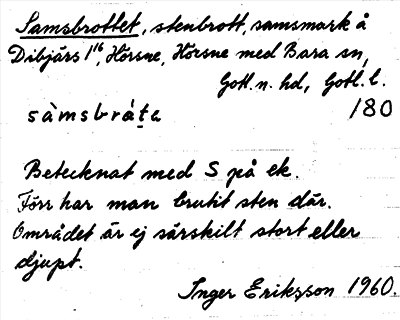 Samsbrottet, stenbrott, samsmark å
Dibjärs 1¹⁶, Hörsne, Hörsne med Bara sn,
Gotl. n. hd, Gotl. l.
sàmsbráṭa 180
Betecknat med S på ek.
Förr har man brutit sten där.
Området är ej särskilt stort eller
djupt.
Inger Eriksson 1960.